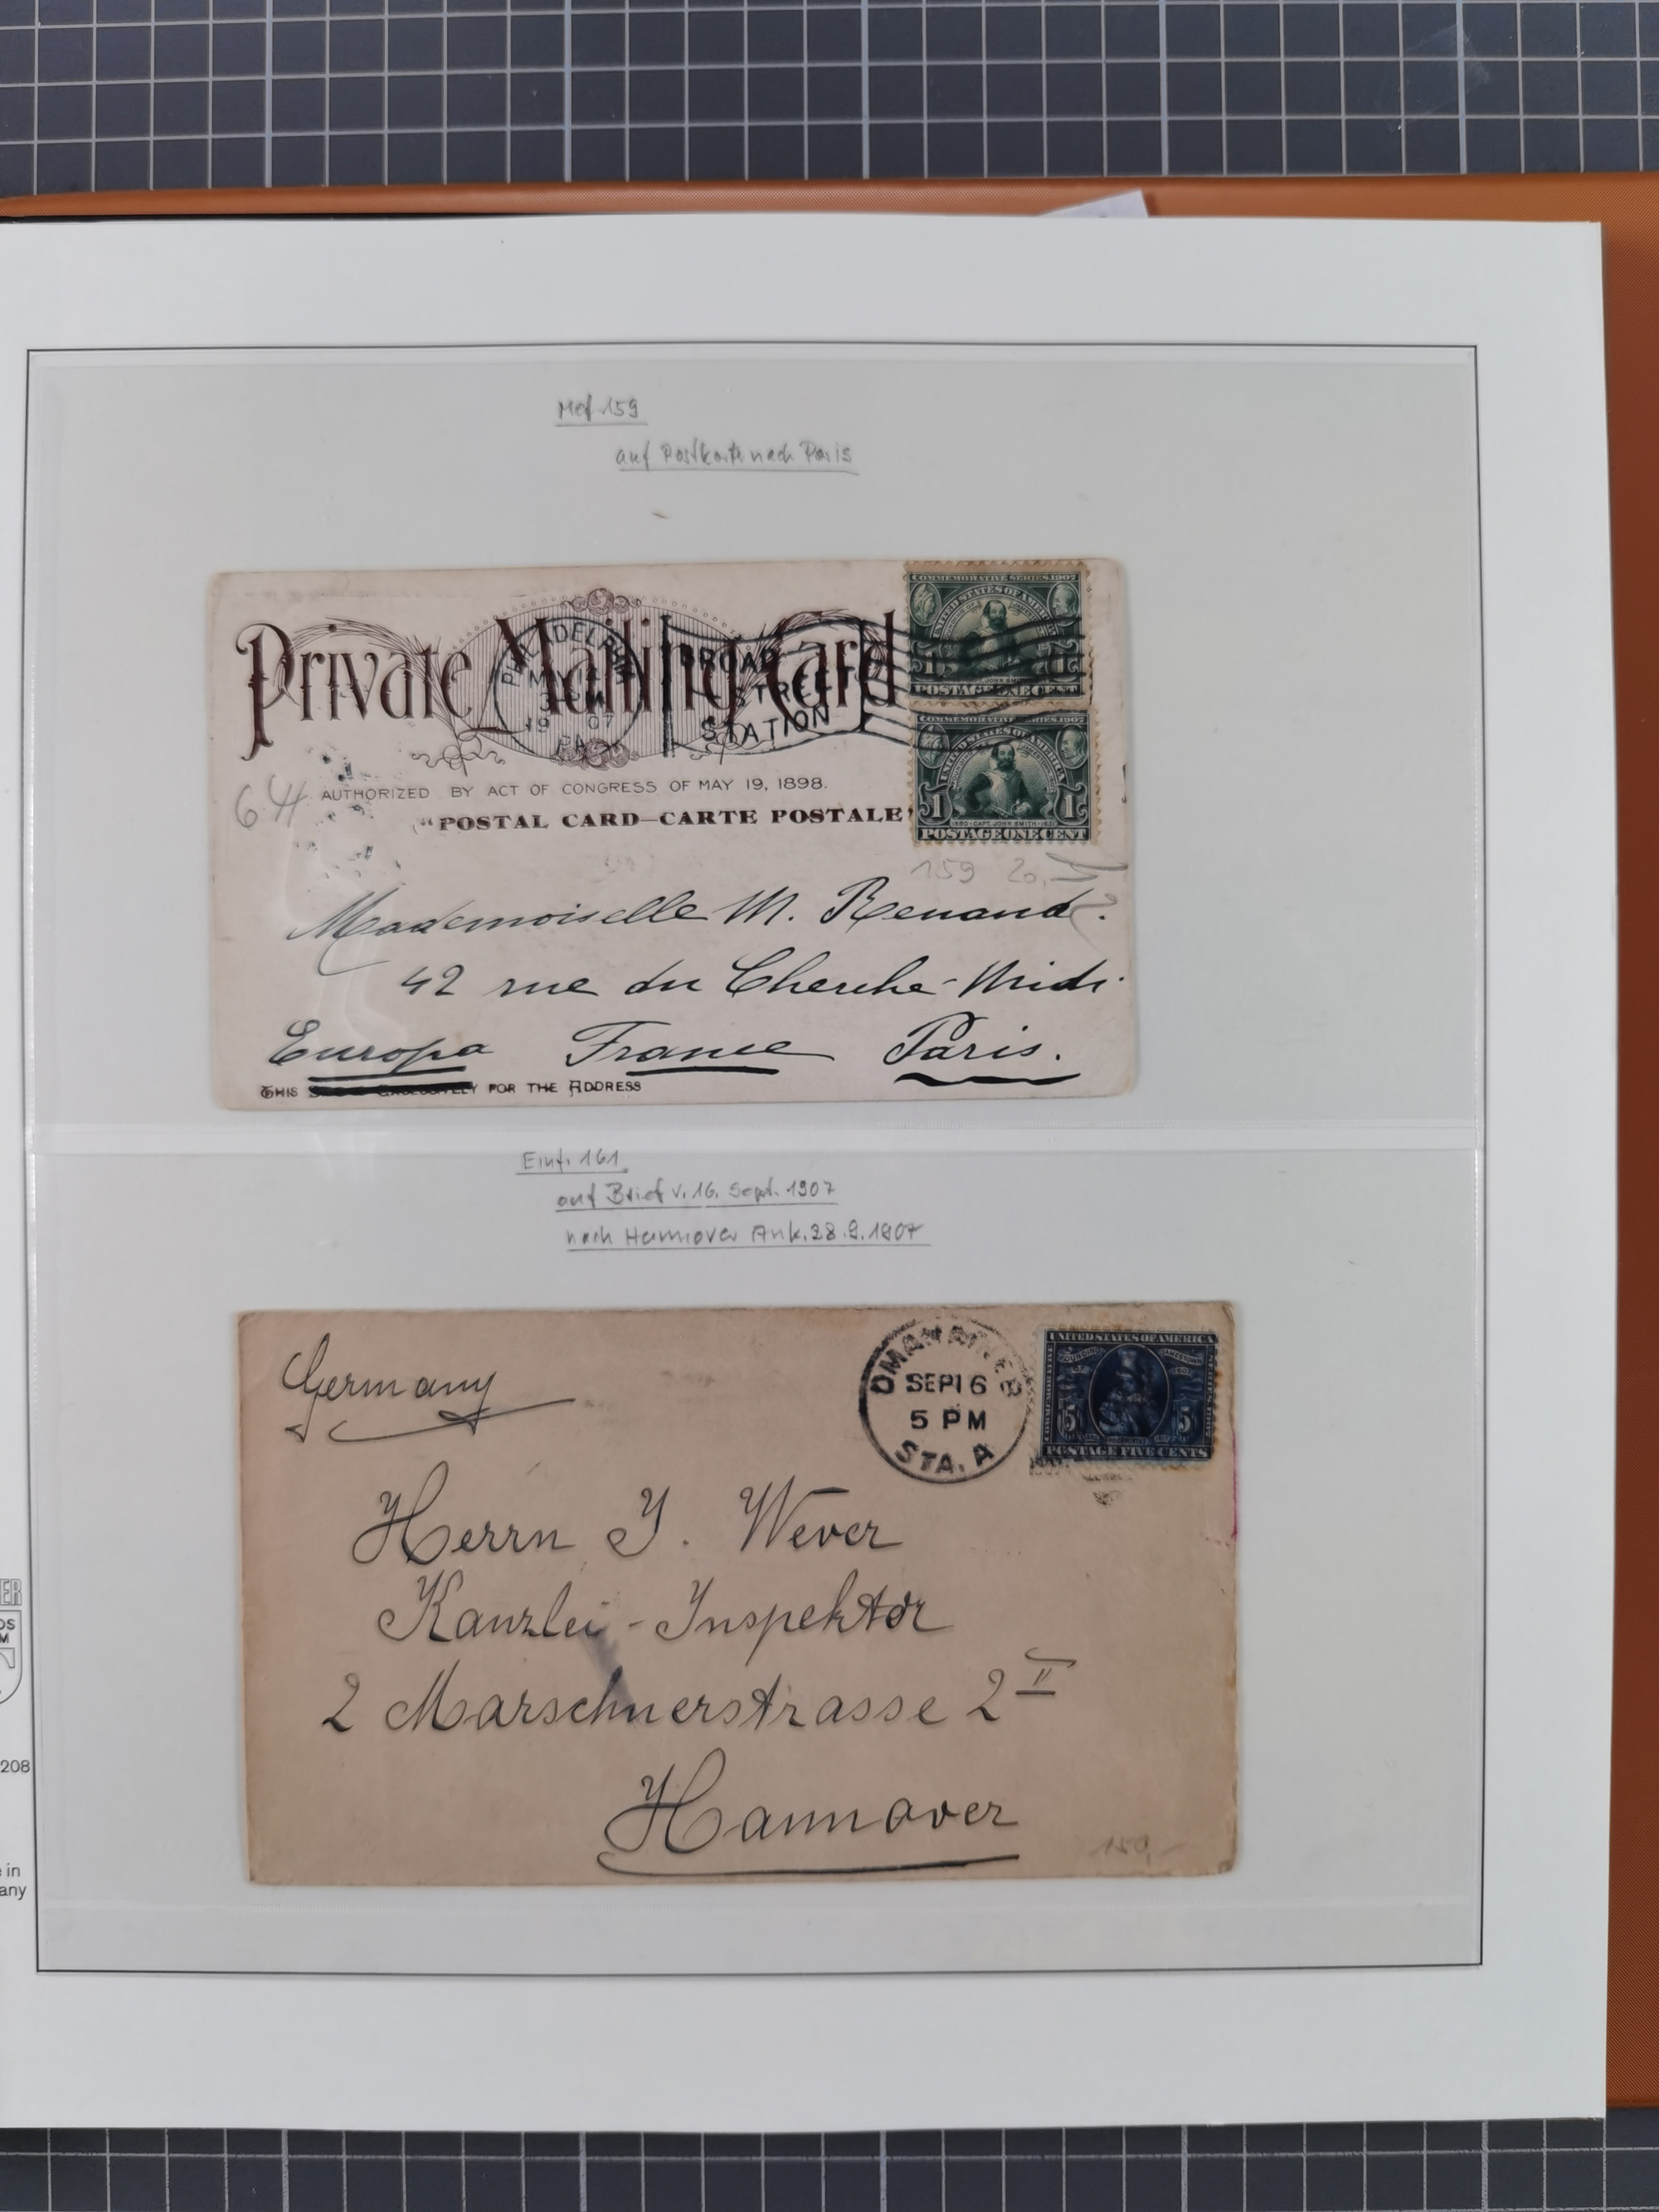 Mef 159
auf Postkarte nach Paris
Private Mailing Card
PHILADELPHIA
3
19 07
PA
BROAD
STREET
STATION
COMMEMORATIVE SERIES 1907
UNITED STATES OF AMERICA
1 1
POSTAGE ONE CENT
COMMEMORATIVE SERIES 1907
UNITED STATES OF AMERICA
1 1
1580 · CAPT. JOHN SMITH · 1631
POSTAGE ONE CENT
64
AUTHORIZED BY ACT OF CONGRESS OF MAY 19, 1898.
"POSTAL CARD—CARTE POSTALE"
159 20,-
Mademoiselle M. Renand.
42 rue du Cherche-Midi
Europa France Paris.
THIS EXCLUSIVELY FOR THE ADDRESS
Einf. 161
auf Brief v. 16. Sept. 1907
nach Hannover Ank. 28.9.1907
Germany
OMAHA, NEB
SEP 16
5 PM
STA. A
1907
UNITED STATES OF AMERICA
FOUNDING OF JAMESTOWN
5 5
POSTAGE FIVE CENTS
Herrn J. Wever
Kanzlei-Inspektor
2 Marschnerstrasse 2 II
Hannover
150,-
ER
OS
M
208
in
any